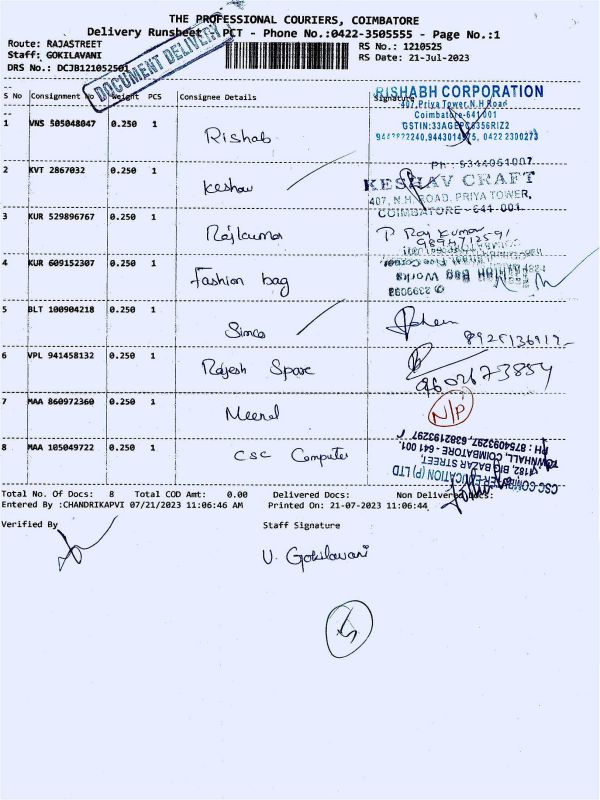 THE PROFESSIONAL COURIERS, COIMBATORE
Delivery Runsheet - PCT - Phone No.:0422-3505555 - Page No.:1
Route: RAJASTREET
RS No.: 1210525
Staff: GOKILAVANI
RS Date: 21-Jul-2023
DRS No.: DCJB121052501
DOCUMENT DELIVERY
S No Consignment No Weight PCS Consignee Details Signature
RISHABH CORPORATION
407, Priya Tower, N.H.Road
Coimbatore-641 001
1 VNS 505048047 0.250 1 Rishab
0422 2300273
2 KVT 2867032 0.250 1 Keshav
Ph : 9344061007
KESHAV CRAFT
407, N.H. ROAD, PRIYA TOWER,
COIMBATORE - 641 001
3 KUR 529896767 0.250 1 Rajkumar
P Raj Kumar
4 KUR 609152307 0.250 1 Fashion bag
Fashion Bag Works
5 BLT 100904218 0.250 1 Simco
6 VPL 941458132 0.250 1 Rajesh Spare
9602673854
7 MAA 860972360 0.250 1 Meeral
N/P
8 MAA 105049722 0.250 1 CSC Computer
CSC COMPUTER EDUCATION (P) LTD
BIG BAZAR STREET,
TOWNHALL, COIMBATORE - 641 001.
PH : 8754093297, 6382193297
Total No. Of Docs: 8 Total COD Amt: 0.00 Delivered Docs: Non Delivered Docs:
Entered By :CHANDRIKAPVI 07/21/2023 11:06:46 AM Printed On: 21-07-2023 11:06:44
Verified By Staff Signature
V. Gokilavani